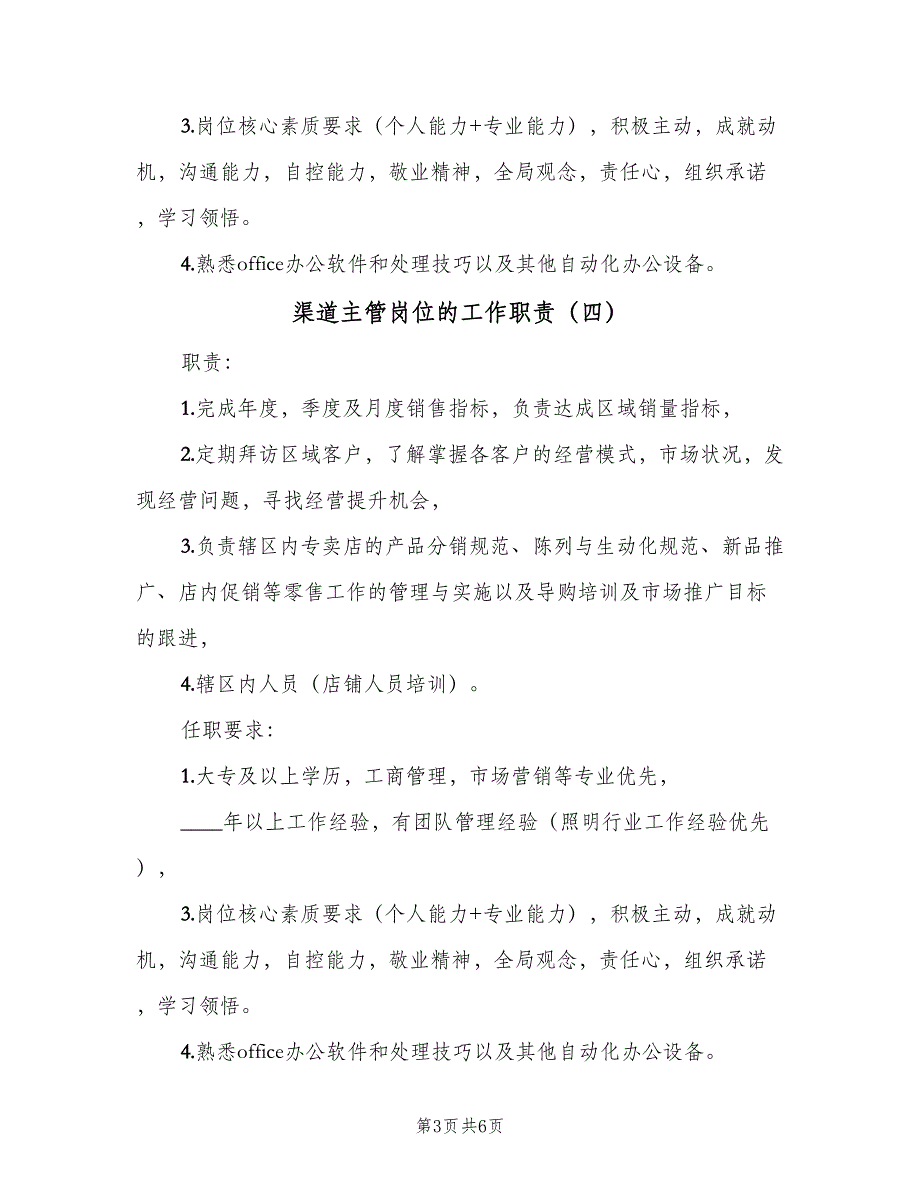 3.岗位核心素质要求（个人能力+专业能力），积极主动，成就动
机，沟通能力，自控能力，敬业精神，全局观念，责任心，组织承诺
，学习领悟。
4.熟悉office办公软件和处理技巧以及其他自动化办公设备。
渠道主管岗位的工作职责（四）
职责：
1.完成年度，季度及月度销售指标，负责达成区域销量指标，
2.定期拜访区域客户，了解掌握各客户的经营模式，市场状况，发
现经营问题，寻找经营提升机会，
3.负责辖区内专卖店的产品分销规范、陈列与生动化规范、新品推
广、店内促销等零售工作的管理与实施以及导购培训及市场推广目标
的跟进，
4.辖区内人员（店铺人员培训）。
任职要求：
1.大专及以上学历，工商管理，市场营销等专业优先，
____年以上工作经验，有团队管理经验（照明行业工作经验优先
），
3.岗位核心素质要求（个人能力+专业能力），积极主动，成就动
机，沟通能力，自控能力，敬业精神，全局观念，责任心，组织承诺
，学习领悟。
4.熟悉office办公软件和处理技巧以及其他自动化办公设备。
第3页共6页